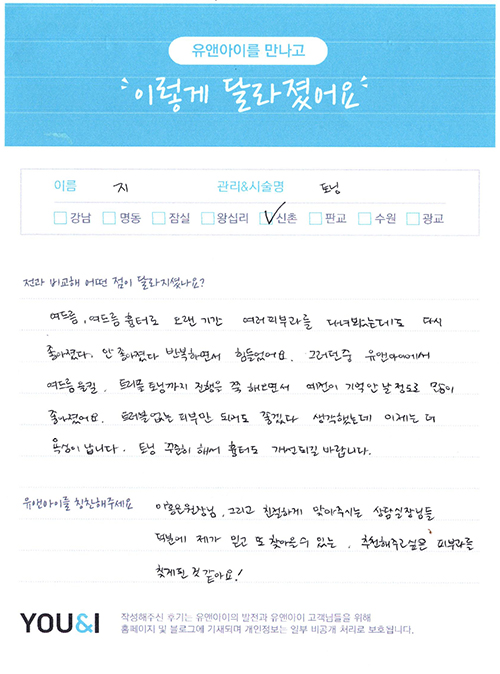 유앤아이를 만나고
이렇게 달라졌어요
이름 지 관리&시술명 토닝
강남 명동 잠실 왕십리 신촌 판교 수원 광교
전과 비교해 어떤 점이 달라지셨나요?
여드름, 여드름 흉터로 오랜 기간 여러 피부과를 다녀봤는데도 다시
좋아졌다. 안 좋아졌다 반복하면서 힘들었어요. 그러던 중 유앤아이에서
여드름 필, 트리플 토닝까지 진행을 쭉 해오면서 예전이 기억 안 날 정도로 많이
좋아졌어요. 트러블없는 피부만 되어도 좋겠다 생각했는데 이제는 더
욕심이 납니다. 토닝 꾸준히 해서 흉터도 개선되길 바랍니다.
유앤아이를 칭찬해주세요
원장님, 그리고 친절하게 맞아주시는 상담실장님들
덕분에 제가 믿고 또 찾아올 수 있는, 추천해주고싶은 피부과를
찾게된 것 같아요!
YOU&I
작성해주신 후기는 유앤아이의 발전과 유앤아이 고객님들을 위해
홈페이지 및 블로그에 기재되며 개인정보는 일부 비공개 처리로 보호됩니다.